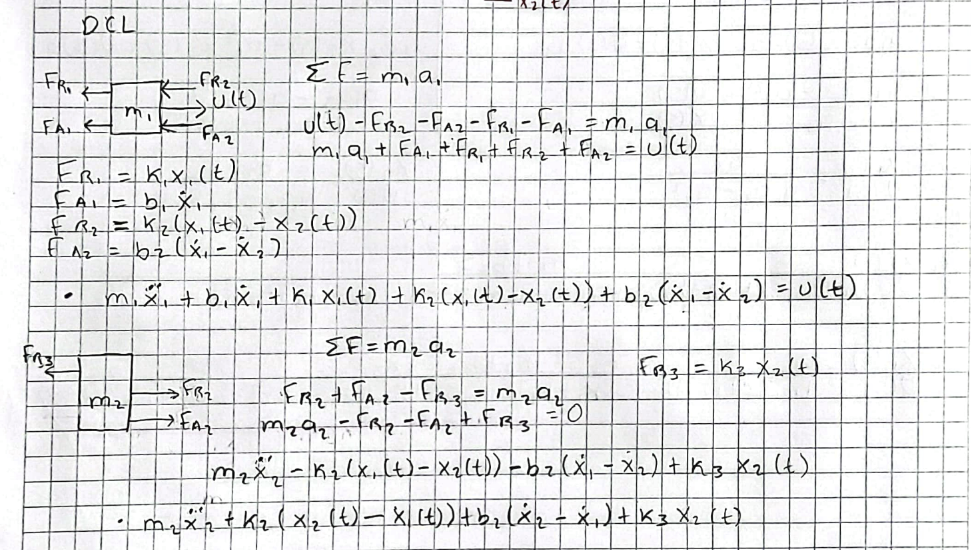 x₂(t)
DCL
FR₁ FR₂ ΣF = m₁a₁
m₁ U(t)
FA₁ FA₂ U(t) - FR₂ - FA₂ - FR₁ - FA₁ = m₁a₁
m₁a₁ + FA₁ + FR₁ + FR₂ + FA₂ = U(t)
FR₁ = K₁x₁(t)
FA₁ = b₁ẋ₁
FR₂ = K₂(x₁(t) - x₂(t))
FA₂ = b₂(ẋ₁ - ẋ₂)
• m₁ẍ₁ + b₁ẋ₁ + K₁x₁(t) + K₂(x₁(t) - x₂(t)) + b₂(ẋ₁ - ẋ₂) = U(t)
FR₃ ΣF = m₂a₂ FR₃ = K₃x₂(t)
m₂ FR₂ FR₂ + FA₂ - FR₃ = m₂a₂
FA₂ m₂a₂ - FR₂ - FA₂ + FR₃ = 0
m₂ẍ₂ - K₂(x₁(t) - x₂(t)) - b₂(ẋ₁ - ẋ₂) + K₃x₂(t)
• m₂ẍ₂ + K₂(x₂(t) - x₁(t)) + b₂(ẋ₂ - ẋ₁) + K₃x₂(t)